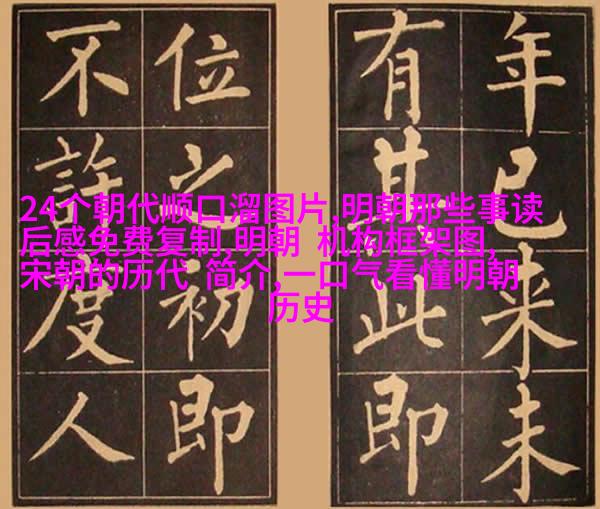 24个朝代顺口溜图片,明朝那些事读
后感免费复制,明朝 机构框架图,
宋朝的历代 简介,一口气看懂明朝
历史
年已来未
有其此即
位之初即
不許度人